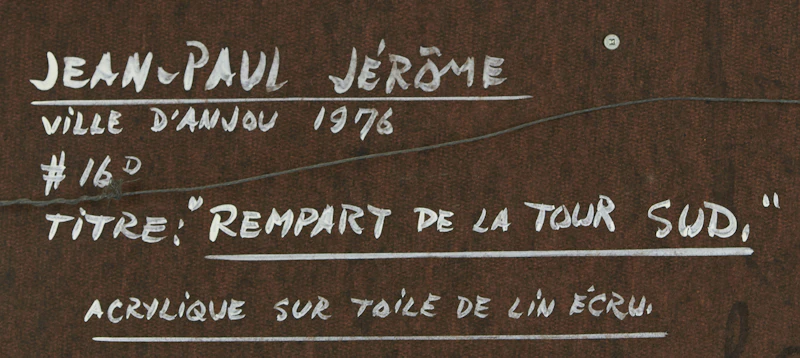 JEAN-PAUL JÉRÔME
VILLE D'ANJOU 1976
# 16D
TITRE: "REMPART DE LA TOUR SUD."
ACRYLIQUE SUR TOILE DE LIN ÉCRU.